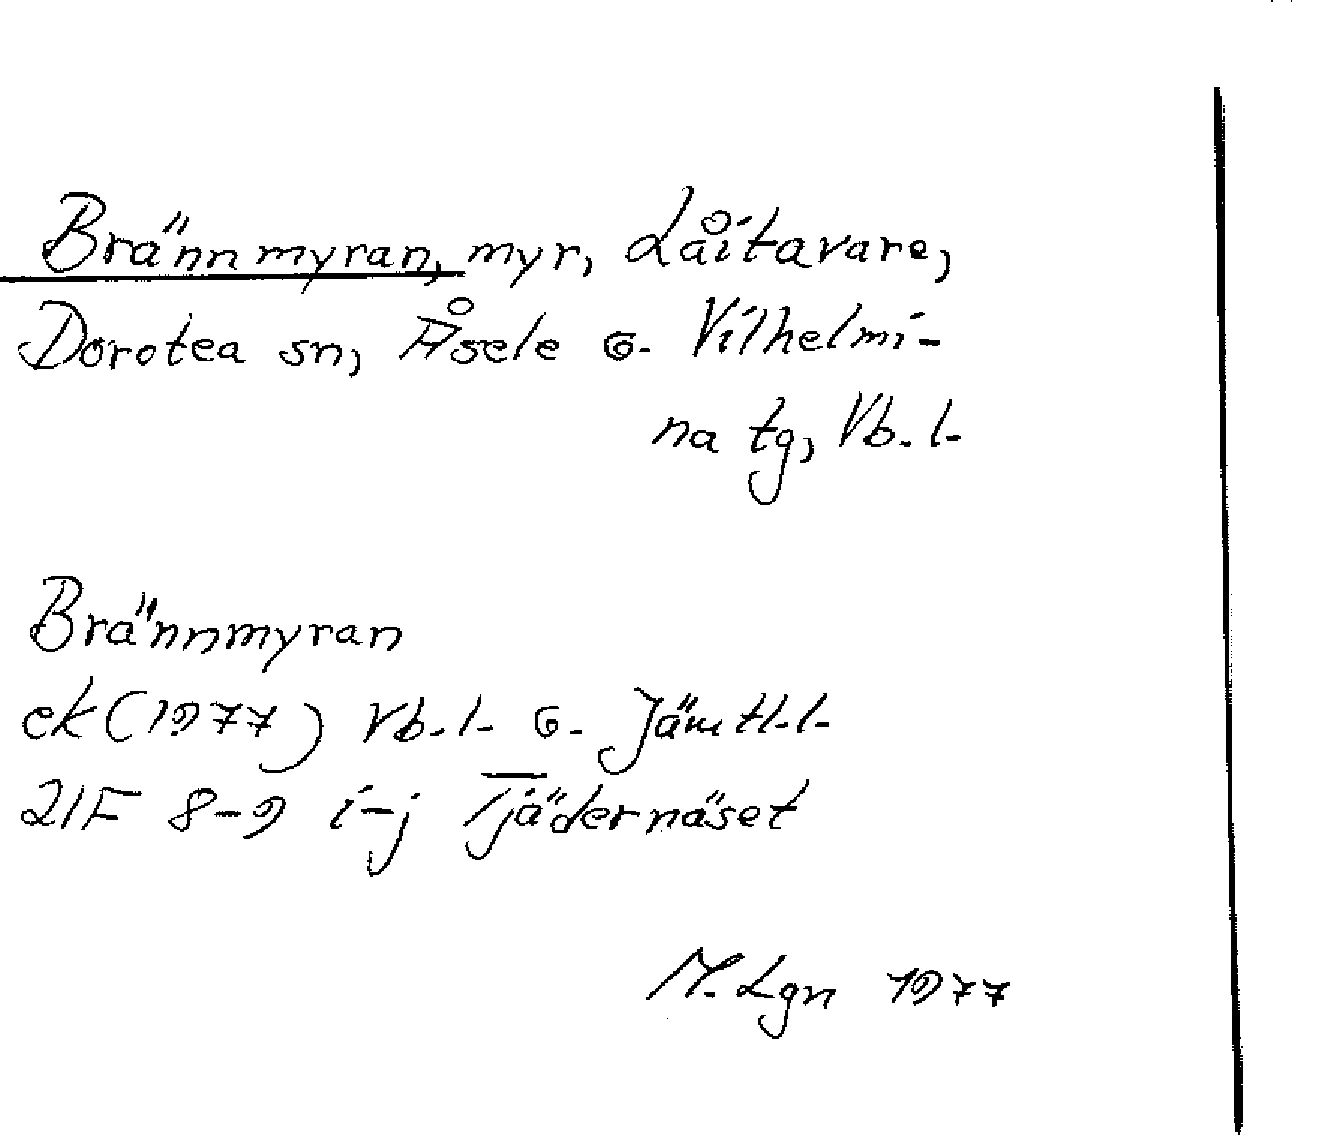 Brännmyran, myr, Låitavare,
Dorotea sn, Åsele o. Vilhelmi-
na tg, Vb. l.
Brännmyran
ek (1977) Vb. l. o. Jämtl. l.
21F 8-9 i-j Tjädernäset
M. Lgn 1977